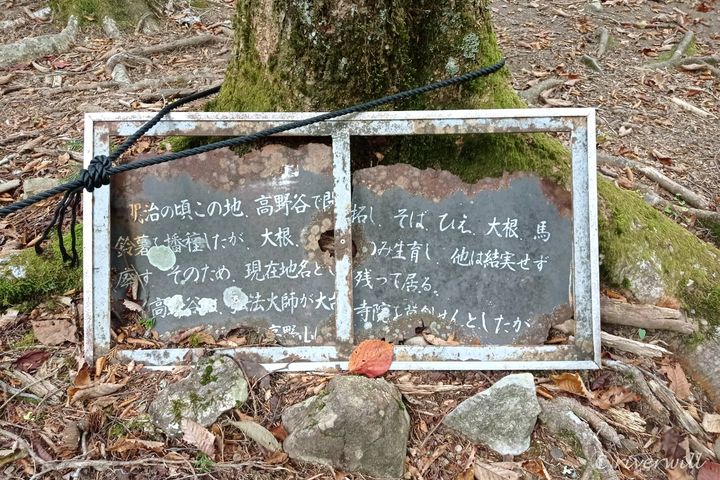 治の頃この地、高野谷で開拓し、そば、ひえ、大根、馬
鈴薯を播種したが、大根、のみ生育し、他は結実せず
廃す。そのため、現在地名として残って居る。
高野谷は、弘法大師が大台寺院を建立せんとしたが
高野山
©riverwill